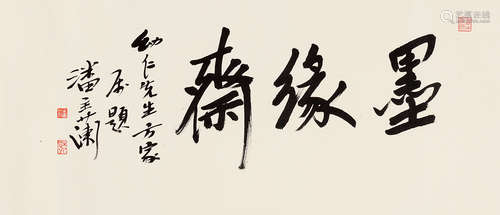 墨緣齋
幼仁先生方家
屬題
潘主蘭